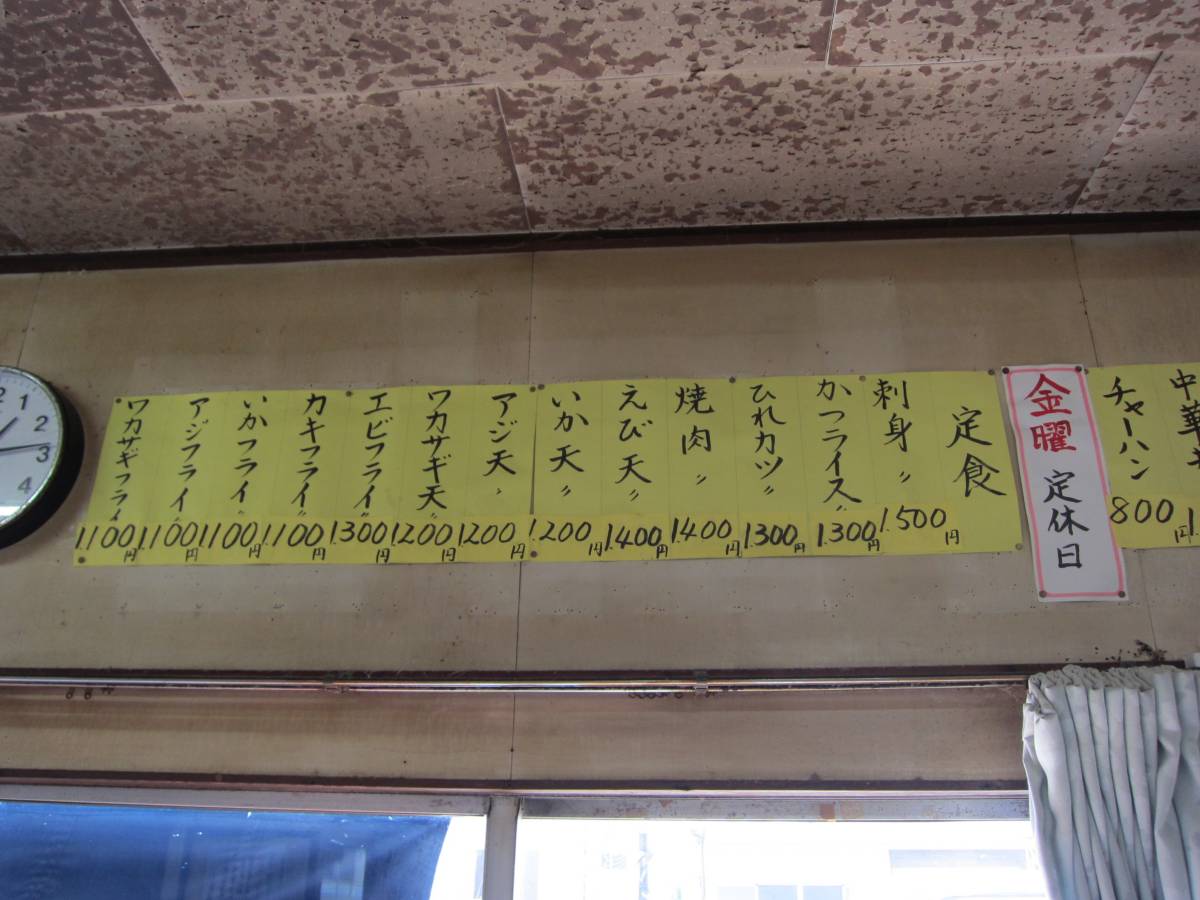 中華
チャーハン
800円
金曜 定休日
定食
刺身〃
1.500円
かつライス〃
1.300円
ひれカツ〃
1.300円
焼肉〃
1.400円
えび天〃
1.400円
いか天〃
1.200円
アジ天〃
1.200円
ワカサギ天〃
1.200円
エビフライ〃
1.300円
カキフライ〃
1.100円
いかフライ〃
1.100円
アジフライ〃
1.100円
ワカサギフライ
1.100円
1
2
3
4